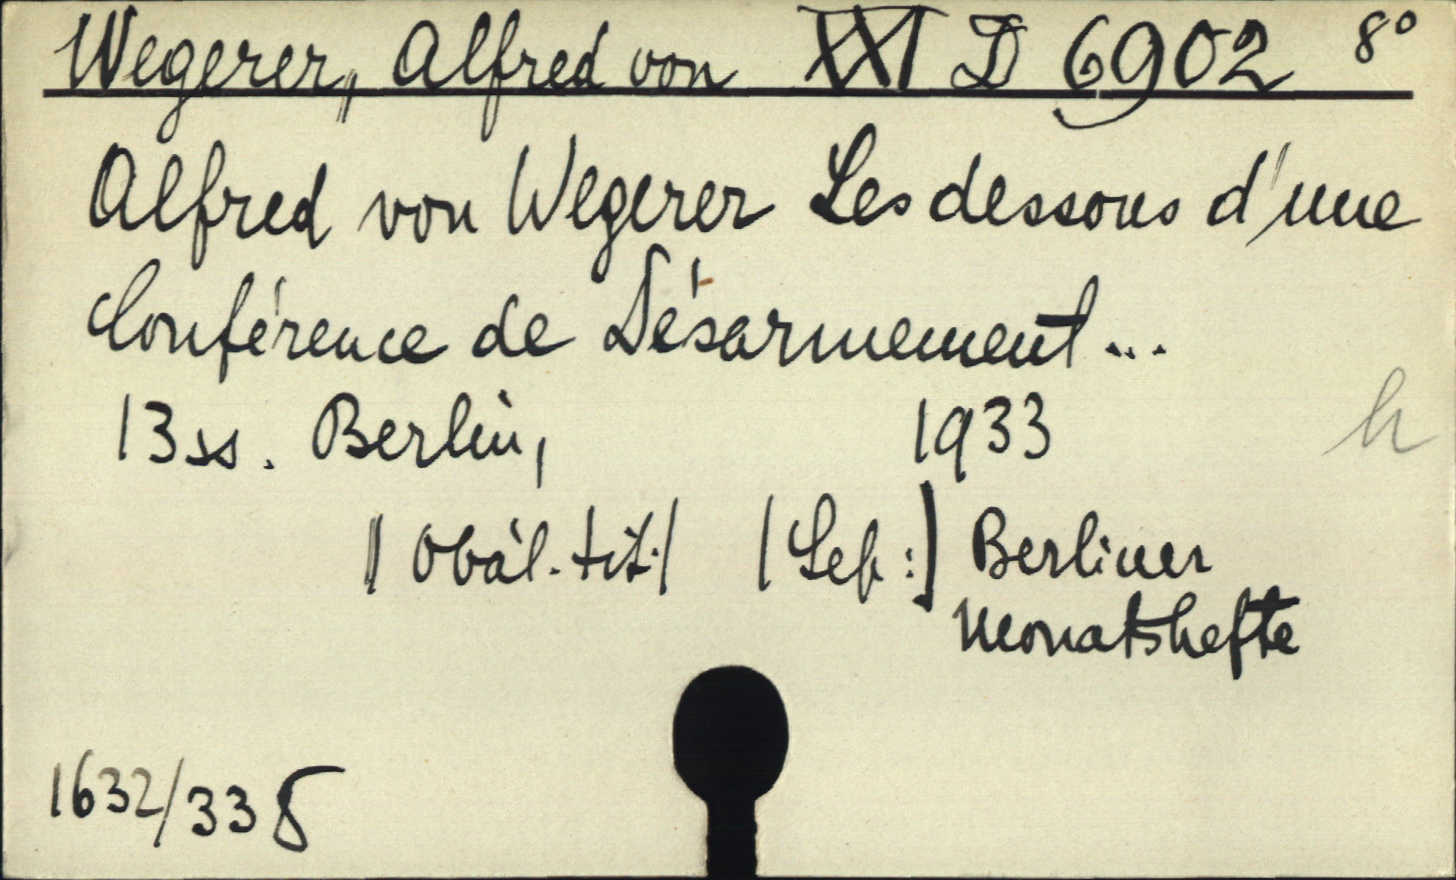 Wegerer, Alfred von XXI D 6902 8°
Alfred von Wegerer Les dessous d'une
Conférence de Désarmement...
13 ss. Berlin, 1933
h
| Obál. tit. | | Sep.: | Berliner
Monatshefte
1632/33